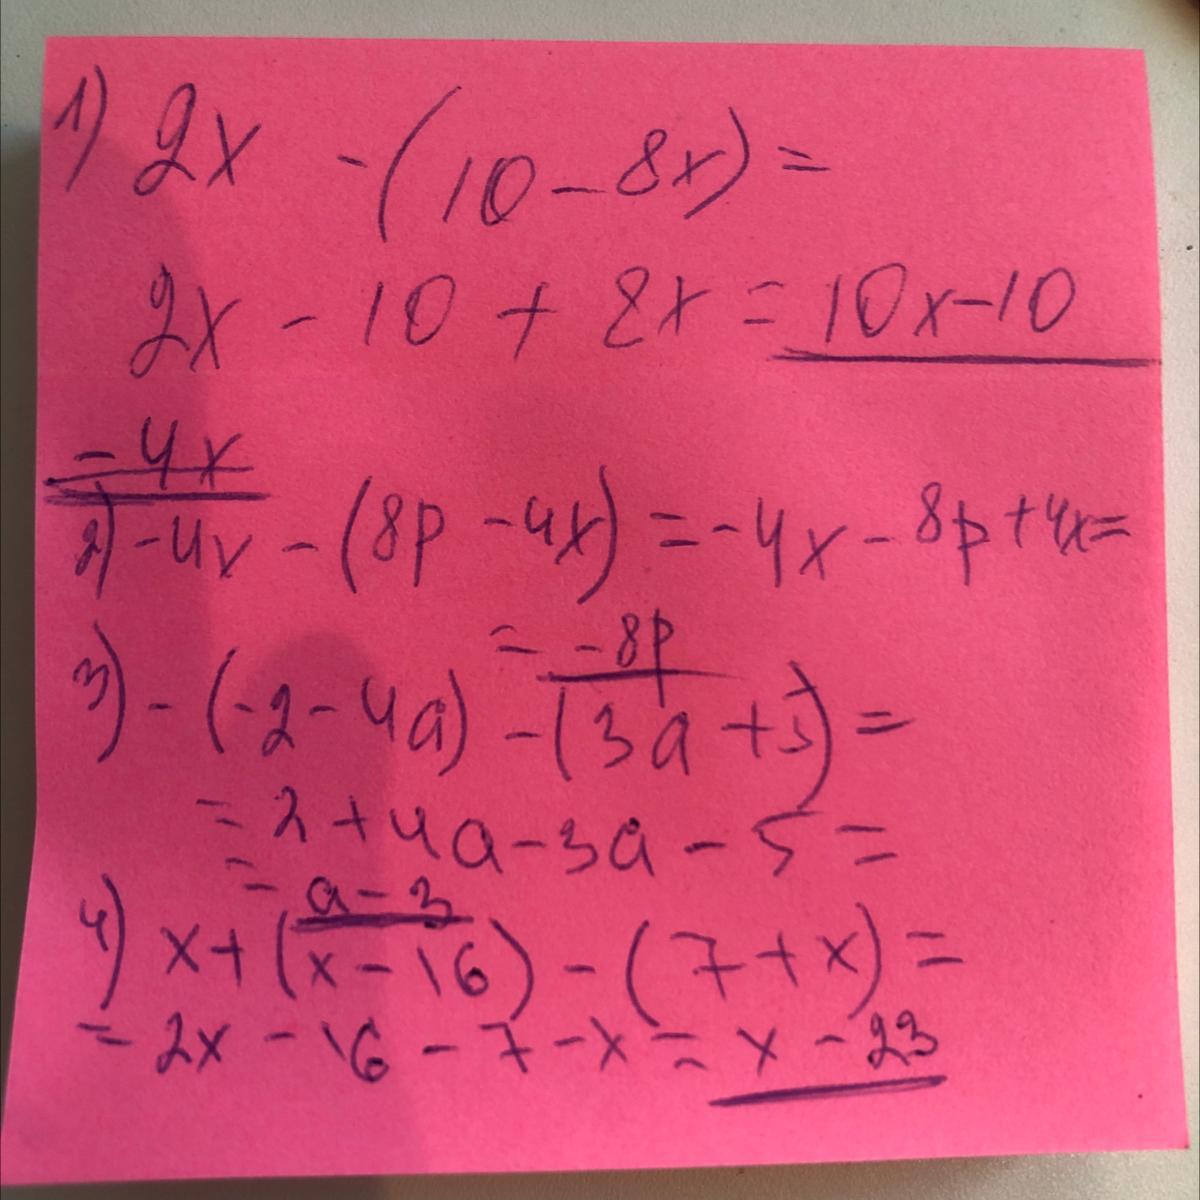 1) 2x - (10 - 8x) =
2x - 10 + 8x = 10x - 10
- 4x
2) - 4x - (8p - 4x) = - 4x - 8p + 4x =
= - 8p
3) - (-2 - 4a) - (3a + 5) =
= 2 + 4a - 3a - 5 =
= a - 3
4) x + (x - 16) - (7 + x) =
= 2x - 16 - 7 - x = x - 23